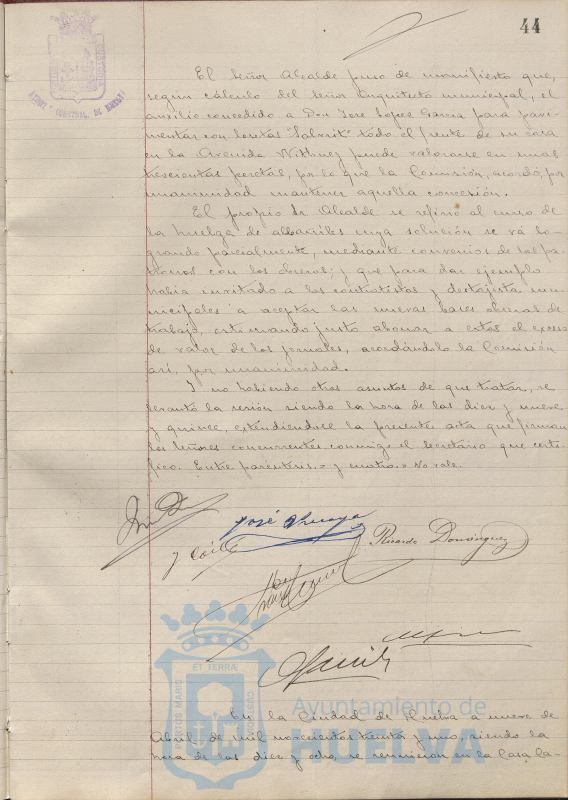 44
El Señor Alcalde puso de manifiesto que,
segun cálculo del Señor Arquitecto municipal, el
auxilio concedido a Don Jose Lopez Garcia para pavi-
mentar con losetas todo el frente de su casa
en la Avenida puede valorarse en unas
trescientas pesetas, por lo que la Comisión, acordó, por
unanimidad mantener aquella concesión.
El propio Sr Alcalde se refirió al curso de
la huelga de albañiles cuya solución se vá lo-
grando parcialmente, mediante convenios de los pa-
tronos con los obreros; y que para dar ejemplo
habia invitado a los contratistas y destajista mu-
nicipales a aceptar las nuevas bases obreras de
trabajo, estimando justo abonar a estos el exceso
de valor de los jornales, acordándolo la Comisión
asi, por unanimidad.
Y no habiendo otros asuntos de que tratar, se
levantó la sesión siendo la hora de las diez y nueve
y quince, extendiendose la presente acta que firman
los Señores concurrentes conmigo el Secretario que certi-
fico. Entre parentesis = y cuatro = No vale.
José
Ricardo Dominguez
ET TERRÆ
PORTUS MARIS
CUSTODIA
Ayuntamiento de
HUELVA
En la Ciudad de Huelva a nueve de
Abril de mil novecientos treinta y uno, siendo la
hora de las diez y ocho, se reunieron en la Casa Ca-